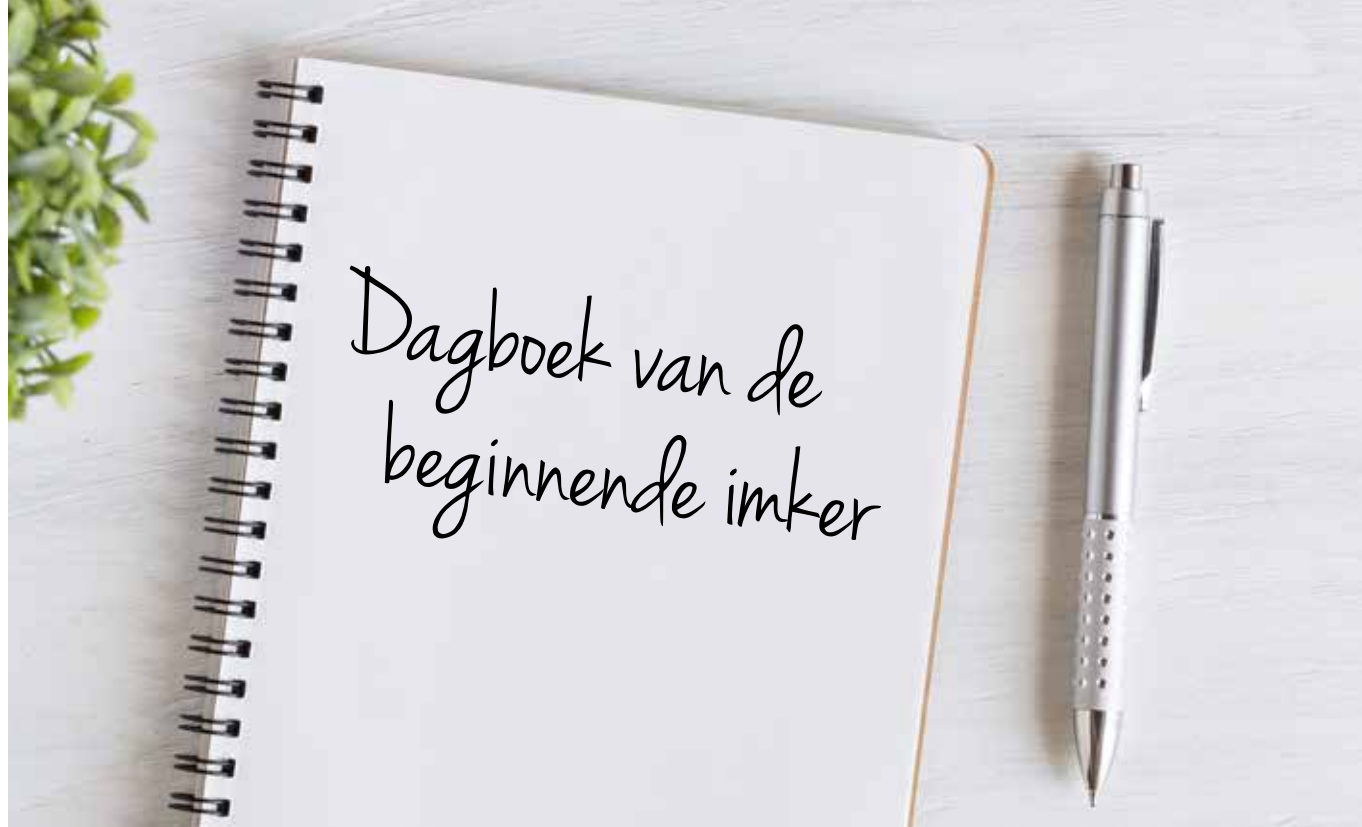 Dagboek van de
beginnende imker